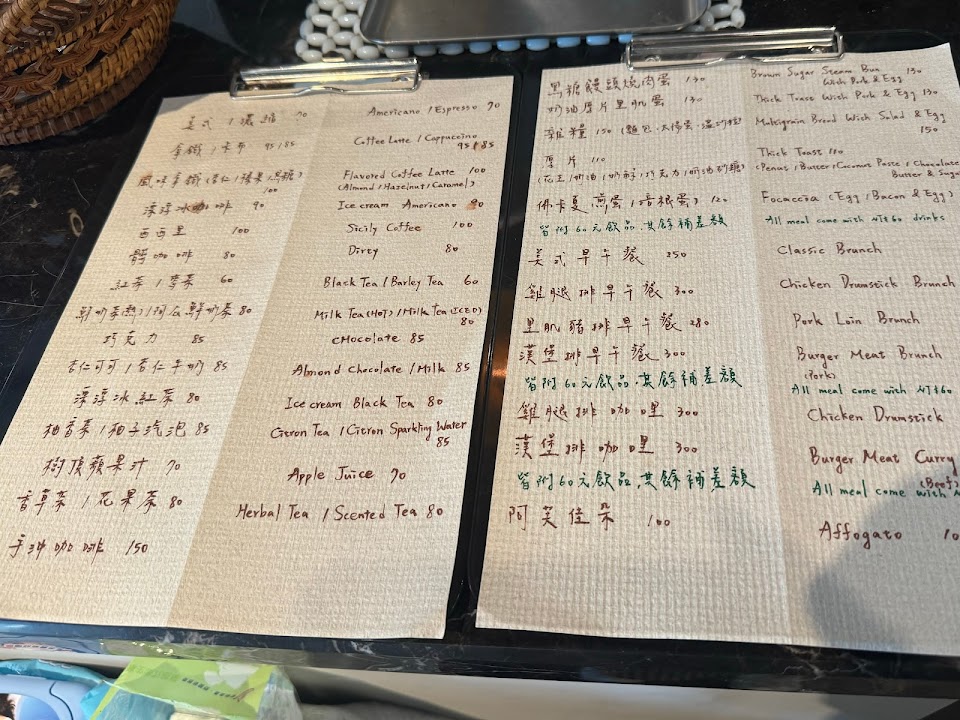 美式 / 濃縮 70
Americano / Espresso 70
拿鐵 / 卡布 95 / 85
Coffee Latte / Cappuccino
95 / 85
風味拿鐵 (杏仁 / 榛果 / 焦糖)
100
Flavored Coffee Latte 100
(Almond / Hazelnut / Caramel)
漂浮冰咖啡 90
Ice cream Americano 90
西西里 100
Sicily Coffee 100
髒咖啡 80
Dirty 80
紅茶 / 麥茶 60
Black Tea / Barley Tea 60
鮮奶茶(熱) / 阿瓜鮮奶茶 80
Milk Tea (HOT) / Milk Tea (ICED)
80
巧克力 85
CHocolate 85
杏仁可可 / 杏仁牛奶 85
Almond Chocolate / Milk 85
漂浮冰紅茶 80
Ice cream Black Tea 80
柚香茶 / 柚子汽泡 85
Citron Tea / Citron Sparkling Water
85
樹頂蘋果汁 70
Apple Juice 70
香草茶 / 花果茶 80
Herbal Tea / Scented Tea 80
手沖咖啡 150
黑糖饅頭燒肉蛋 130
Brown Sugar Steam Bun 130
With Pork & Egg
奶油厚片里肌蛋 130
Thick Toast With Pork & Egg 130
雜糧 150 (麵包.太陽蛋.溫沙拉)
Multigrain Bread With Salad & Egg
150
厚片 110
Thick Toast 110
(花生 / 奶油 / 奶酥 / 巧克力 / 奶油砂糖)
(Penus / Butter / Coconut Paste / Chocolate
Butter & Suga
佛卡夏 (煎蛋 / 培根蛋) 120
Focaccia (Egg / Bacon & Egg)
皆附60元飲品,其餘補差額
All meal come with NT$60 drinks
美式早午餐 250
Classic Brunch
雞腿排早午餐 300
Chicken Drumstick Brunch
里肌豬排早午餐 280
Pork Loin Brunch
漢堡排早午餐 300
Burger Meat Brunch
(Pork)
皆附60元飲品,其餘補差額
All meal come with NT$60
雞腿排咖哩 300
Chicken Drumstick
漢堡排咖哩 300
Burger Meat Curry
(Beef)
皆附60元飲品,其餘補差額
All meal come with N
阿芙佳朵 100
Affogato 10